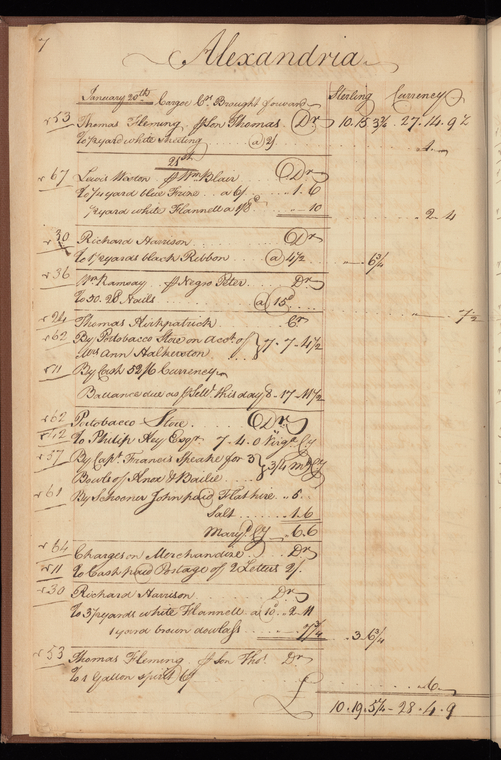 7
Alexandria
January 20th Cargoe Cr. Brought forward Sterling Currency
53 Thomas Fleming Son Thomas Dr 10.15.3¾ 27.14.9½
To yard white Sheeting @ 2/ 1.
21st
67 Lewis Weston Wm Blair Dr
To yard blue Frize a 6/ 1.6
yard white Flannell a 1/8 10 2.4
30 Richard Harrison Dr
To 1½ yards black Ribbon @ 4½ 6¾
36 Wm Ramsay Negroe Peter Dr
To 50. 20d Nails @ 15d 7½
24 Thomas Kirkpatrick Cr
62 By Portobacco Store on Acct. of
Mrs Ann Halkerston 7.7.4½
11 By Cash 52/6 Currency
Ballance due as Settt. this day 8.17.11½
62 Portobacco Store Dr
12 To Philip Key Esqr. 7.4.0 Virga Cy
57 By Capt. Francis Speake for 3
Bowls of Knox & Bailie 3/4 Md Cy
61 By Schooner John paid Flat hire 5.
Salt 1.6
Maryd. Cy 6.6
64 Charges on Merchandize Dr
11 To Cash paid Postage of 2 Letters 2/
30 Richard Harrison Dr
To 3½ yards white Flannell a 10d 2.11
1 yard brown dowlass 7¾ 3.6¾
53 Thomas Fleming Son Thos. Dr
To 1 Gallon spirit 6/ 6.
£ 10.19.5¼ 28.4.9